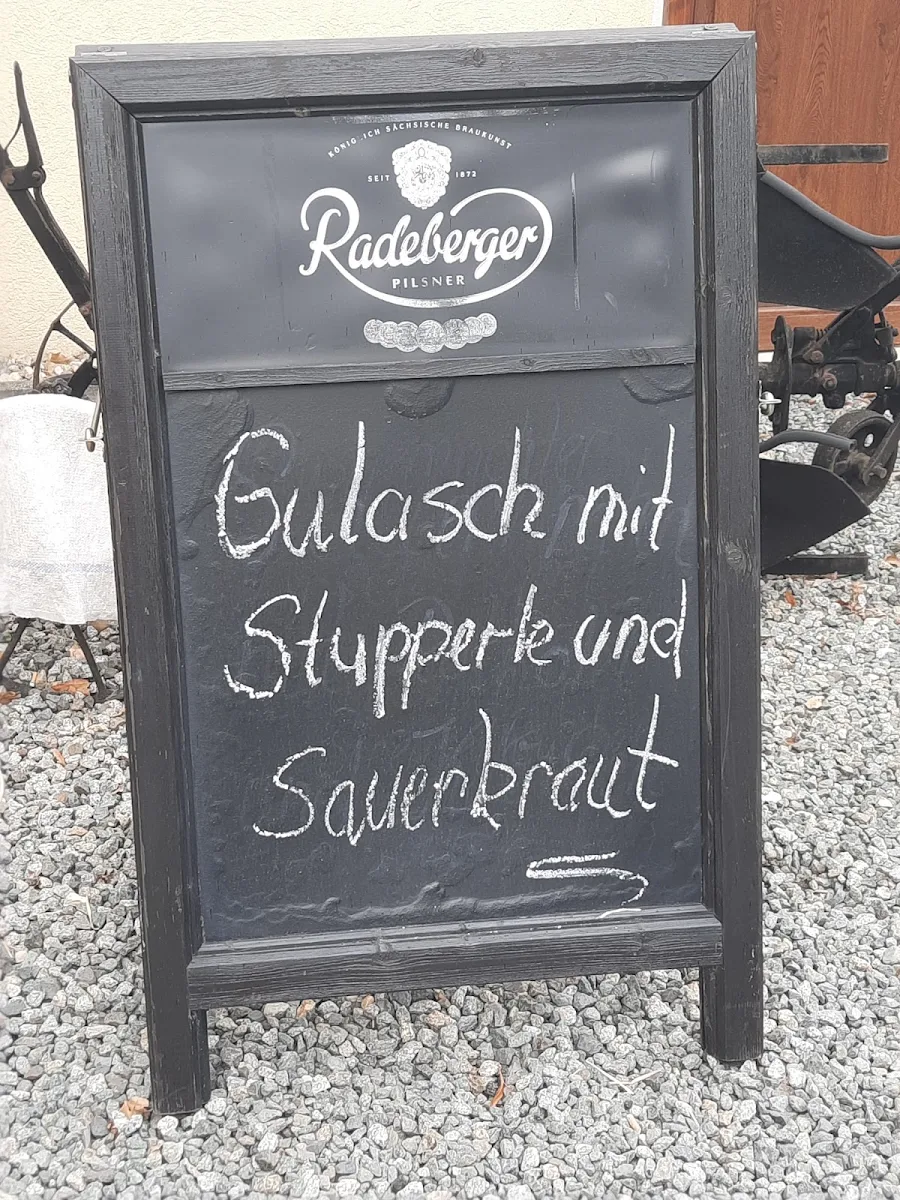 KÖNIGLICH SÄCHSISCHE BRAUKUNST
SEIT 1872
Radeberger
PILSNER
Gulasch mit
Stupperle und
Sauerkraut